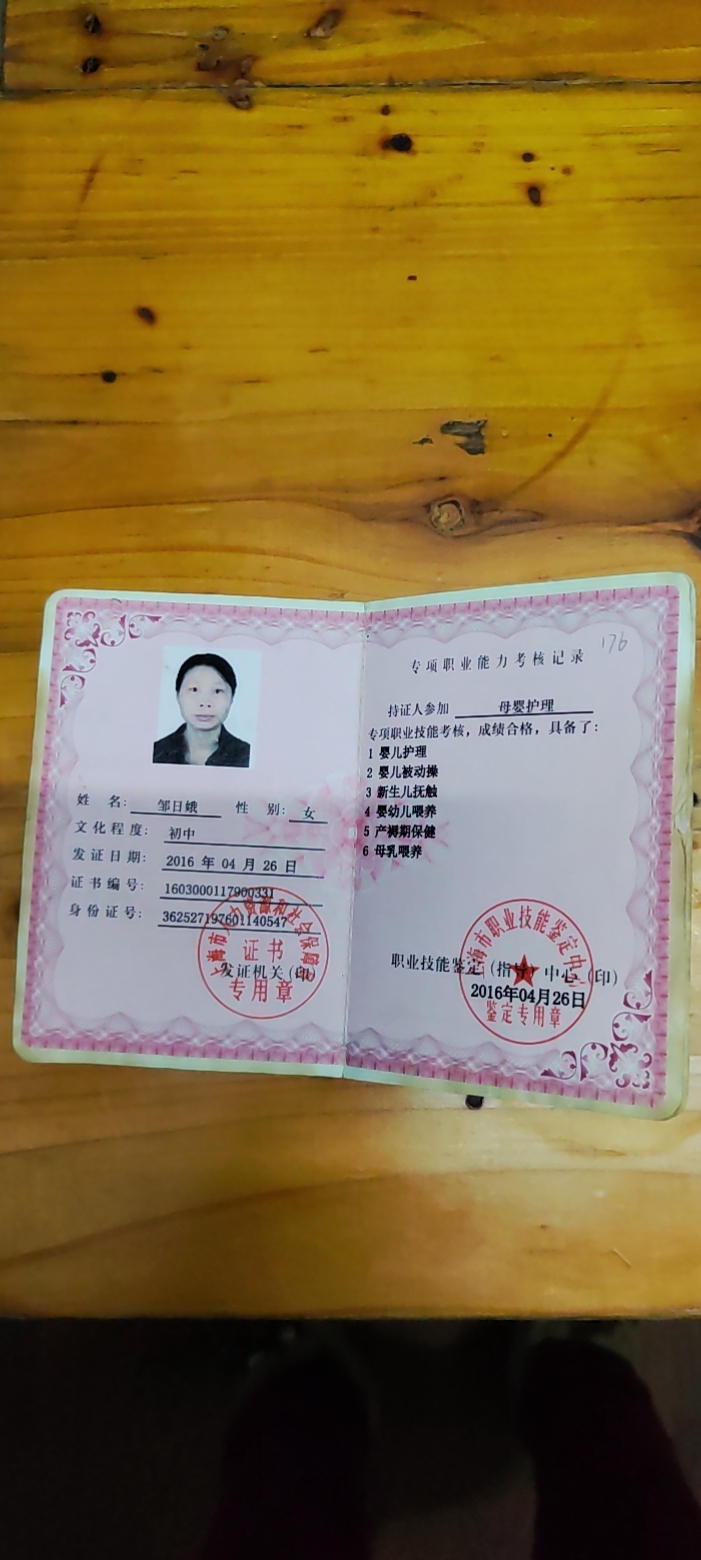 姓 名: 邹日娥 性 别: 女
文化程度: 初中
发证日期: 2016 年 04 月 26 日
证书编号: 1603000117900331
身份证号: 362527197601140547
发证机关(印)
上海市人力资源和社会保障局
证书
专用章
176
专项职业能力考核记录
持证人参加 母婴护理
专项职业技能考核，成绩合格，具备了:
1 婴儿护理
2 婴儿被动操
3 新生儿抚触
4 婴幼儿喂养
5 产褥期保健
6 母乳喂养
职业技能鉴定(指导)中心(印)
2016年04月26日
上海市职业技能鉴定中心
鉴定专用章